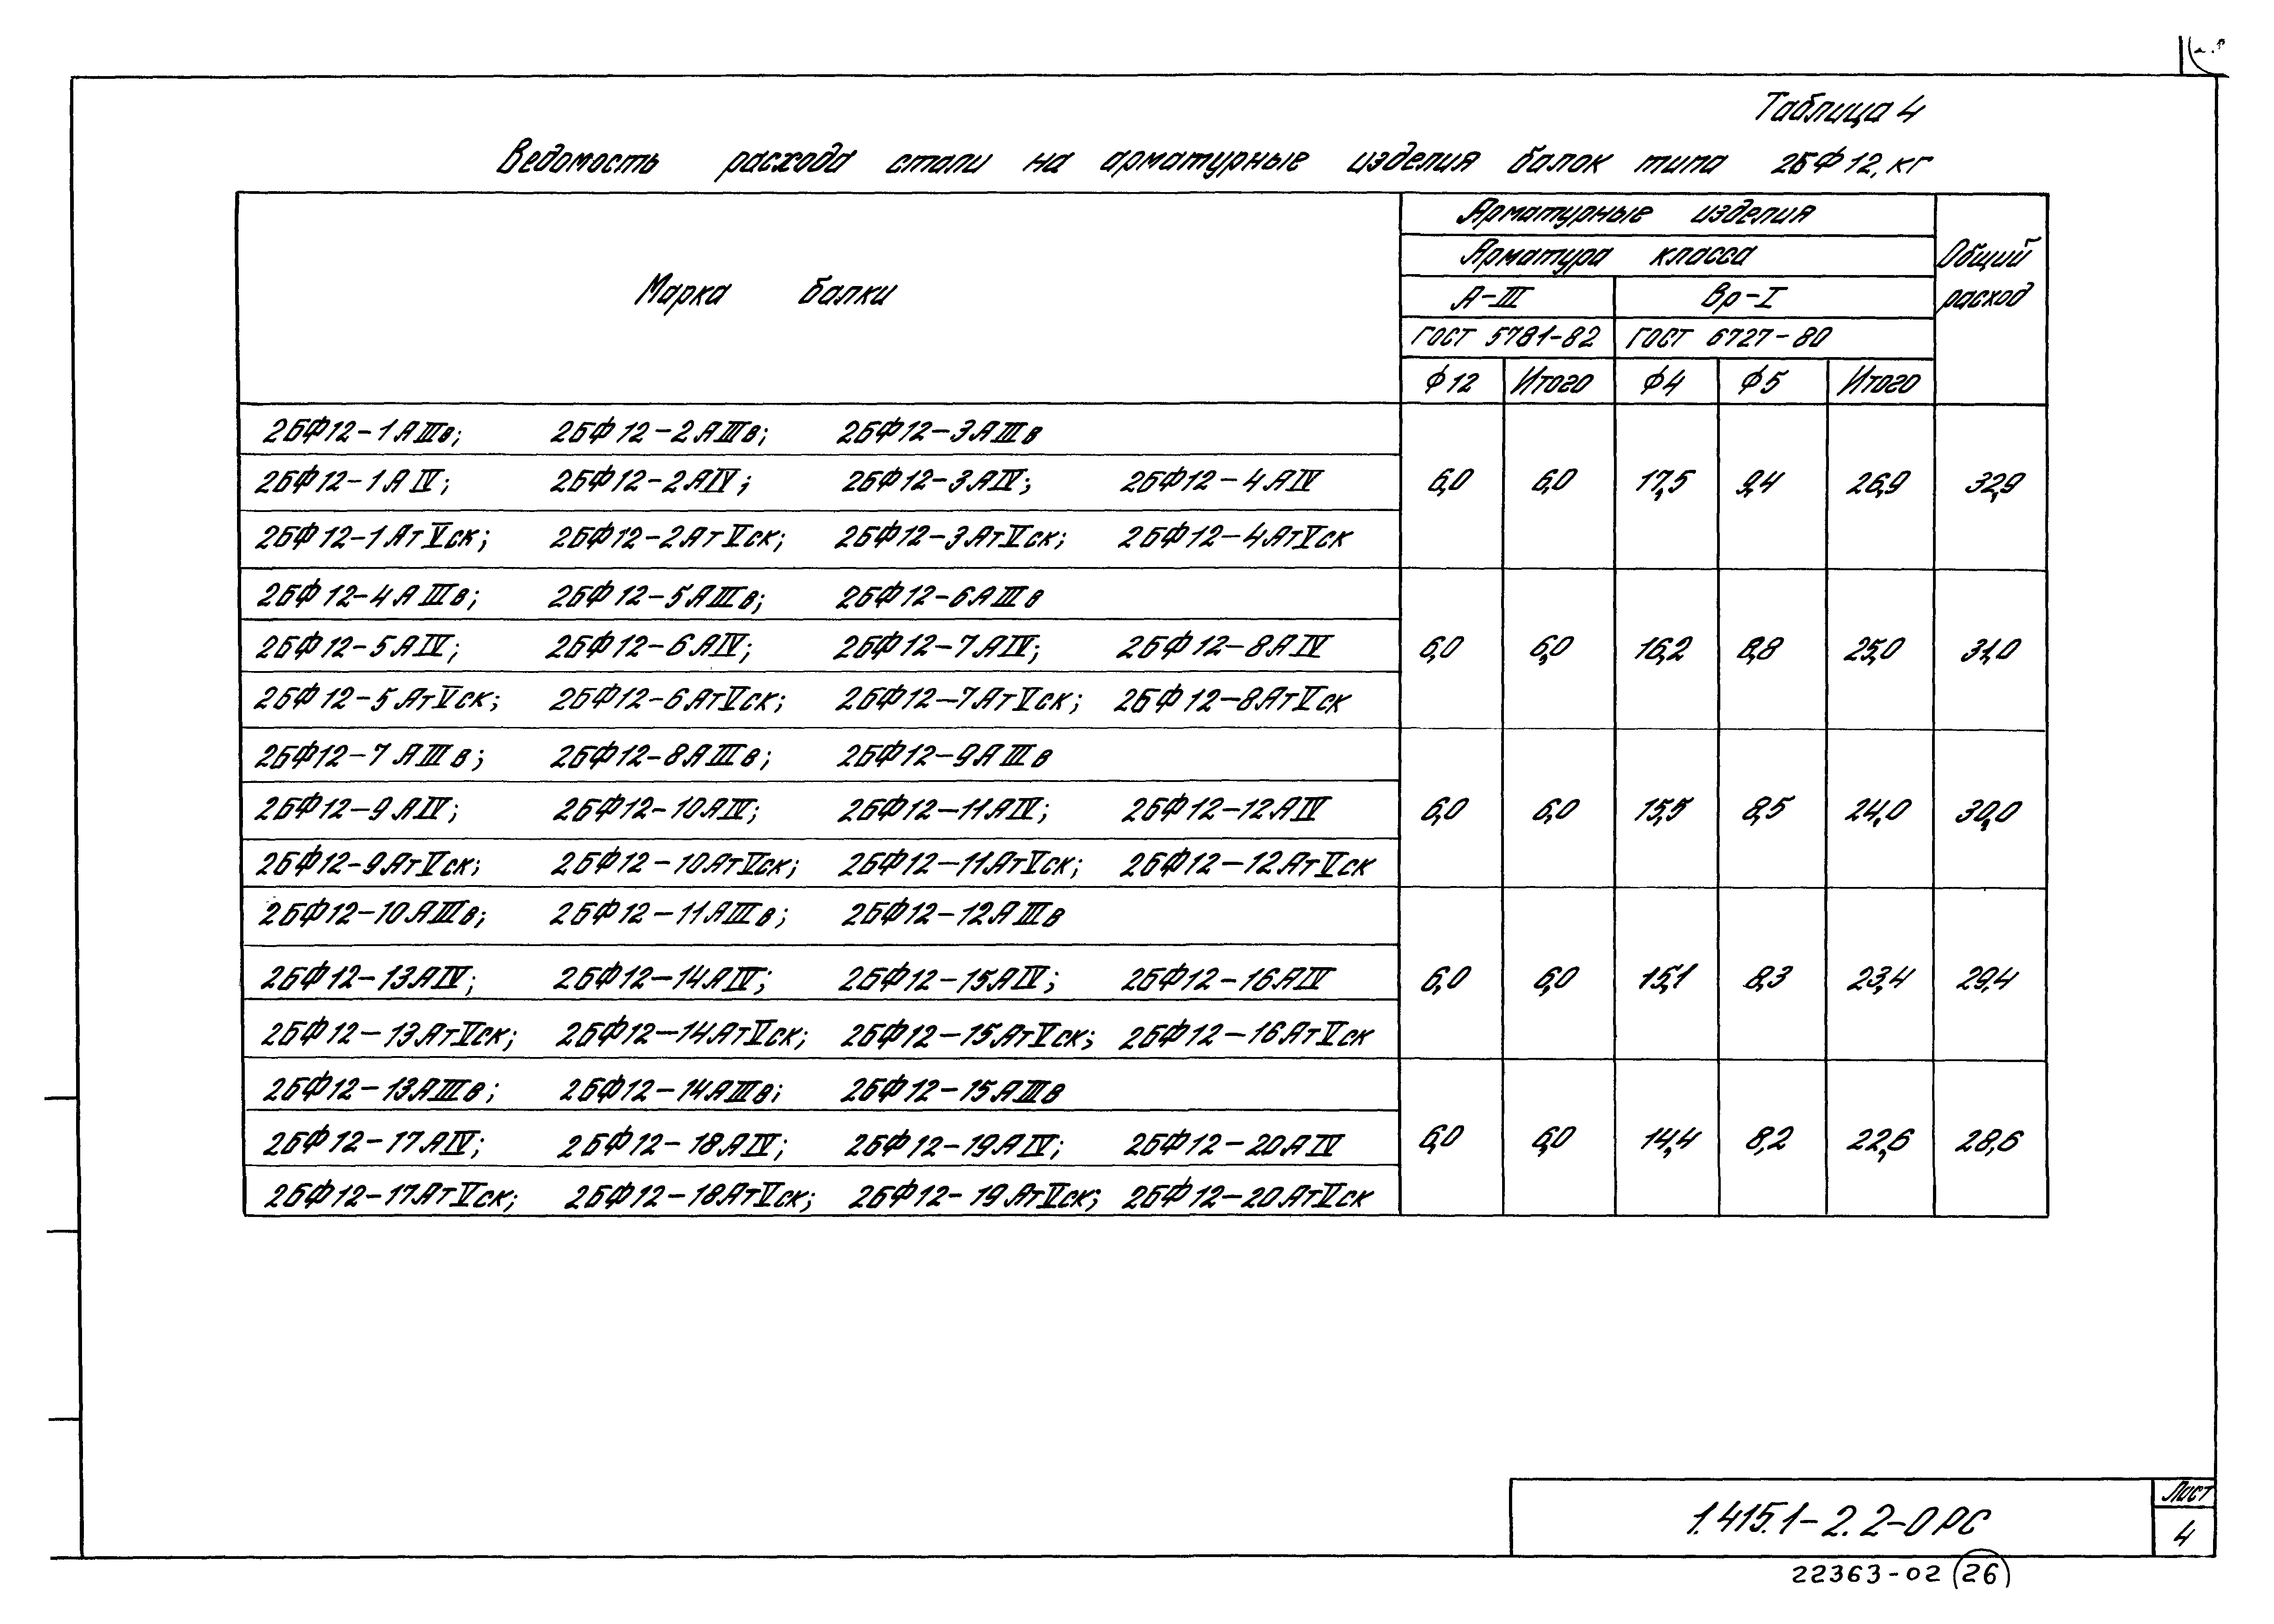 Таблица 4
Ведомость расхода стали на арматурные изделия балок типа 2БФ12, кг
Марка балки
Арматурные изделия
Общий расход
Арматура класса
А-III Вр-I
ГОСТ 5781-82 ГОСТ 6727-80
Ф12 Итого Ф4 Ф5 Итого
2БФ12-1АIIIв; 2БФ12-2АIIIв; 2БФ12-3АIIIв
2БФ12-1АIV; 2БФ12-2АIV; 2БФ12-3АIV; 2БФ12-4АIV 6,0 6,0 17,5 9,4 26,9 32,9
2БФ12-1АтVск; 2БФ12-2АтVск; 2БФ12-3АтVск; 2БФ12-4АтVск
2БФ12-4АIIIв; 2БФ12-5АIIIв; 2БФ12-6АIIIв
2БФ12-5АIV; 2БФ12-6АIV; 2БФ12-7АIV; 2БФ12-8АIV 6,0 6,0 16,2 8,8 25,0 31,0
2БФ12-5АтVск; 2БФ12-6АтVск; 2БФ12-7АтVск; 2БФ12-8АтVск
2БФ12-7АIIIв; 2БФ12-8АIIIв; 2БФ12-9АIIIв
2БФ12-9АIV; 2БФ12-10АIV; 2БФ12-11АIV; 2БФ12-12АIV 6,0 6,0 15,5 8,5 24,0 30,0
2БФ12-9АтVск; 2БФ12-10АтVск; 2БФ12-11АтVск; 2БФ12-12АтVск
2БФ12-10АIIIв; 2БФ12-11АIIIв; 2БФ12-12АIIIв
2БФ12-13АIV; 2БФ12-14АIV; 2БФ12-15АIV; 2БФ12-16АIV 6,0 6,0 15,1 8,3 23,4 29,4
2БФ12-13АтVск; 2БФ12-14АтVск; 2БФ12-15АтVск; 2БФ12-16АтVск
2БФ12-13АIIIв; 2БФ12-14АIIIв; 2БФ12-15АIIIв
2БФ12-17АIV; 2БФ12-18АIV; 2БФ12-19АIV; 2БФ12-20АIV 6,0 6,0 14,4 8,2 22,6 28,6
2БФ12-17АтVск; 2БФ12-18АтVск; 2БФ12-19АтVск; 2БФ12-20АтVск
1.415.1-2.2-0РС
Лист
4
22363-02 26